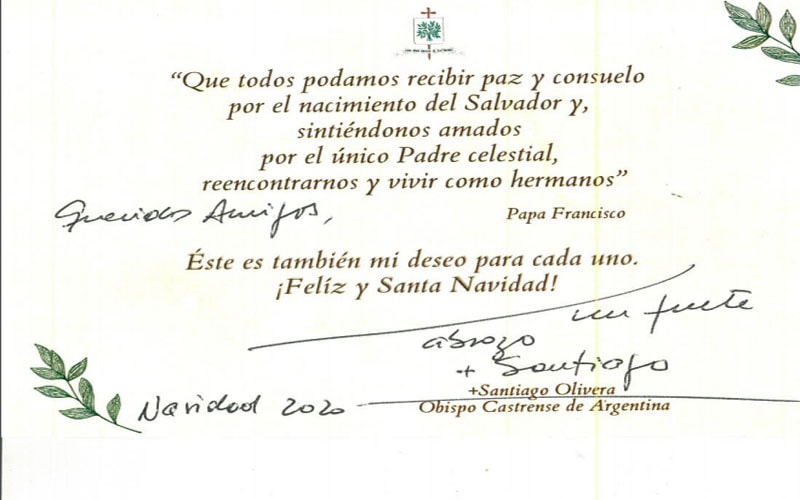 “Que todos podamos recibir paz y consuelo
por el nacimiento del Salvador y,
sintiéndonos amados
por el único Padre celestial,
reencontrarnos y vivir como hermanos”
Queridos Amigos,
Papa Francisco
Éste es también mi deseo para cada uno.
¡Felíz y Santa Navidad!
un fuerte
abrazo
+ Santiago
+Santiago Olivera
Navidad 2020
Obispo Castrense de Argentina